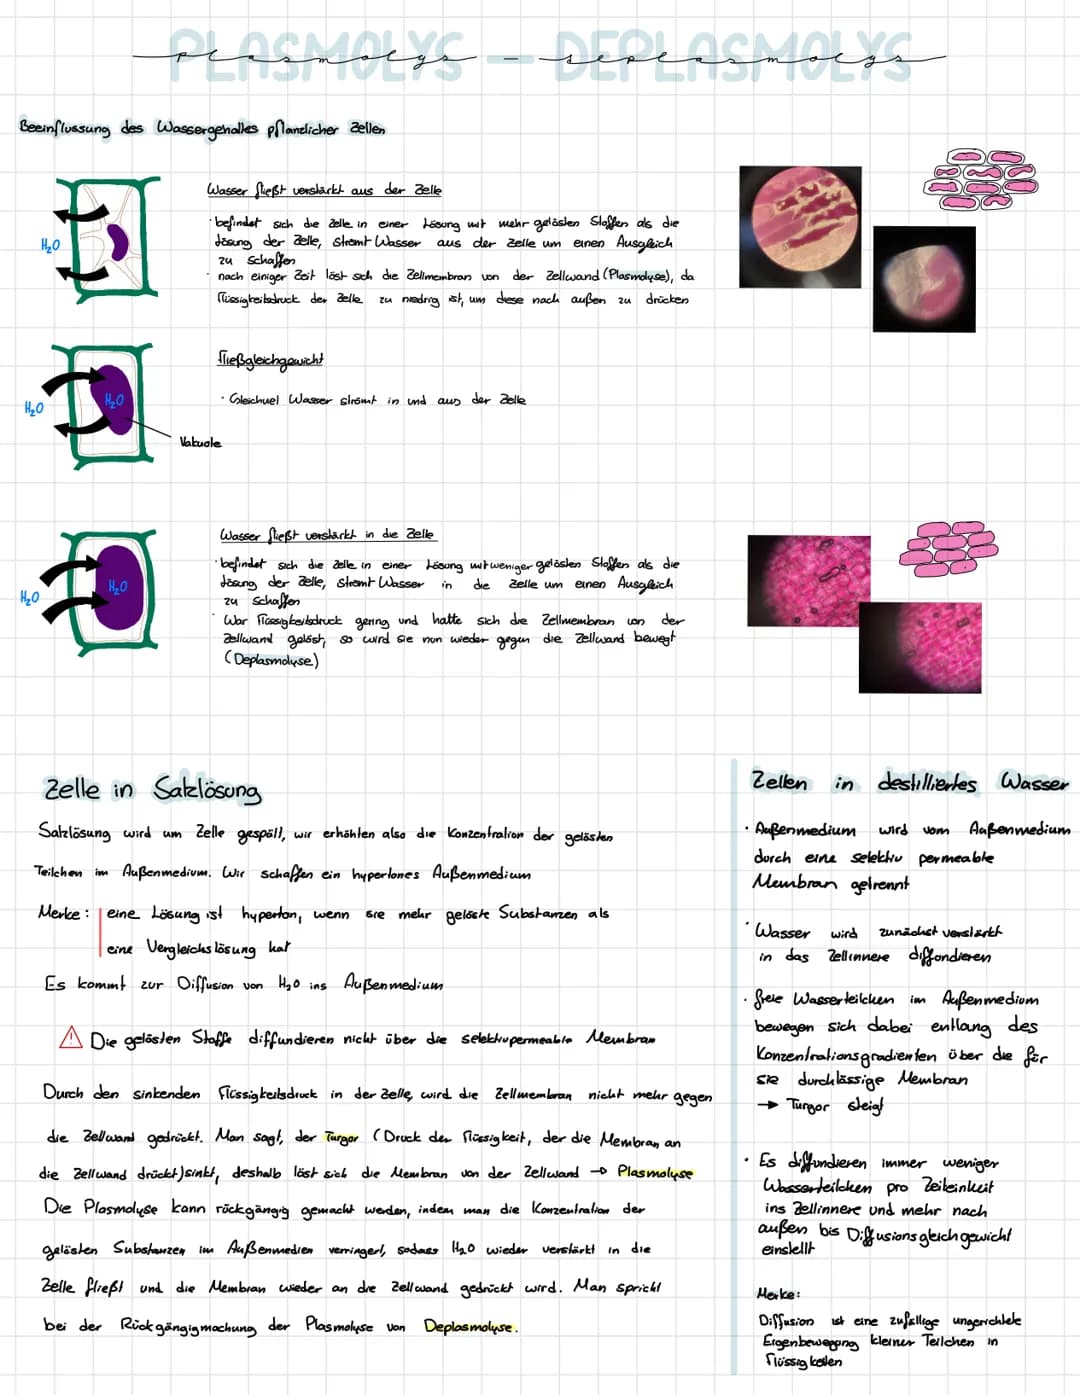 PLASMOLYS – DEPLASMOLYS
plasmolys – deplasmolys
Beeinflussung des Wassergehaltes pflanzlicher Zellen
H₂O
Wasser fließt verstärkt aus der Zelle
· befindet sich die Zelle in einer Lösung mit mehr gelösten Stoffen als die
Lösung der Zelle, strömt Wasser aus der Zelle um einen Ausgleich
zu schaffen
· nach einiger Zeit löst sich die Zellmembran von der Zellwand (Plasmolyse), da
Flüssigkeitsdruck der Zelle zu niedrig ist, um diese nach außen zu drücken
H₂O
H₂O
Vakuole
Fließgleichgewicht
· Gleichviel Wasser strömt in und aus der Zelle
H₂O
H₂O
Wasser fließt verstärkt in die Zelle
· befindet sich die Zelle in einer Lösung mit weniger gelösten Stoffen als die
Lösung der Zelle, strömt Wasser in die Zelle um einen Ausgleich
zu schaffen
· War Flüssigkeitsdruck gering und hatte sich die Zellmembran von der
Zellwand gelöst, so wird sie nun wieder gegen die Zellwand bewegt
(Deplasmolyse)
Zelle in Salzlösung
Salzlösung wird um Zelle gespült, wir erhöhten also die Konzentration der gelösten
Teilchen im Außenmedium. Wir schaffen ein hypertones Außenmedium
Merke: eine Lösung ist hyperton, wenn sie mehr gelöste Substanzen als
eine Vergleichslösung hat
Es kommt zur Diffusion von H₂O ins Außenmedium
⚠ Die gelösten Stoffe diffundieren nicht über die selektivpermeable Membran
Durch den sinkenden Flüssigkeitsdruck in der Zelle, wird die Zellmembran nicht mehr gegen
die Zellwand gedrückt. Man sagt, der Turgor (Druck der Flüssigkeit, der die Membran an
die Zellwand drückt) sinkt, deshalb löst sich die Membran von der Zellwand → Plasmolyse
Die Plasmolyse kann rückgängig gemacht werden, indem man die Konzentration der
gelösten Substanzen im Außenmedien verringert, sodass H₂O wieder verstärkt in die
Zelle fließt und die Membran wieder an die Zellwand gedrückt wird. Man spricht
bei der Rückgängigmachung der Plasmolyse von Deplasmolyse.
Zellen in destilliertes Wasser
· Außenmedium wird vom Außenmedium
durch eine selektiv permeable
Membran getrennt
· Wasser wird zunächst verstärkt
in das Zellinnere diffondieren
· freie Wasserteilchen im Außenmedium
bewegen sich dabei entlang des
Konzentrationsgradienten über die für
sie durchlässige Membran
→ Turgor steigt
· Es diffundieren immer weniger
Wasserteilchen pro Zeiteinheit
ins Zellinnere und mehr nach
außen bis Diffusionsgleichgewicht
einstellt
Merke:
Diffusion ist eine zufällige ungerichtete
Eigenbewegung kleiner Teilchen in
Flüssigkeiten